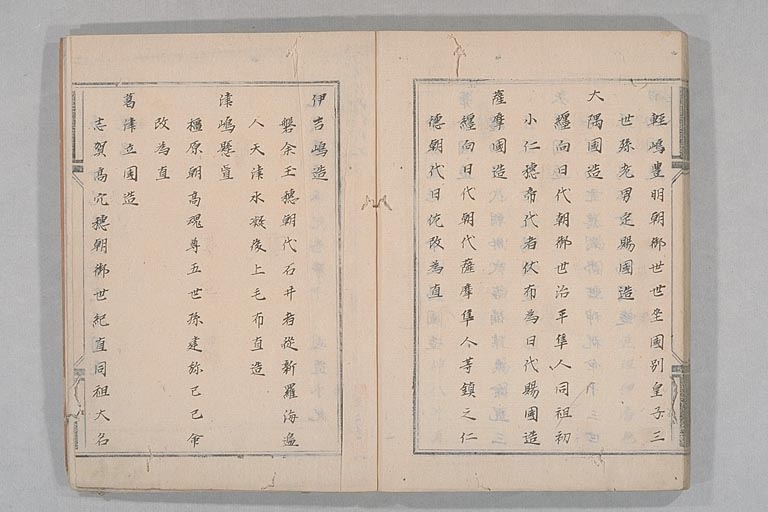 輕嶋豊明朝御世坐國別皇子三
世孫老男定賜國造
大隅國造
纏向日代朝御世治平隼人同祖初
小仁徳帝代者伏布為日代賜國造
薩摩國造
纏向日代朝代薩摩隼人等鎮之仁
徳朝代日佐改為直
伊吉嶋造
磐余玉穂朝代石井者從新羅海邉
人天津水凝後上毛布直造
津嶋縣直
橿原朝高魂尊五世孫建弥己己命
改為直
葛津立國造
志賀高穴穂朝御世紀直同祖大名